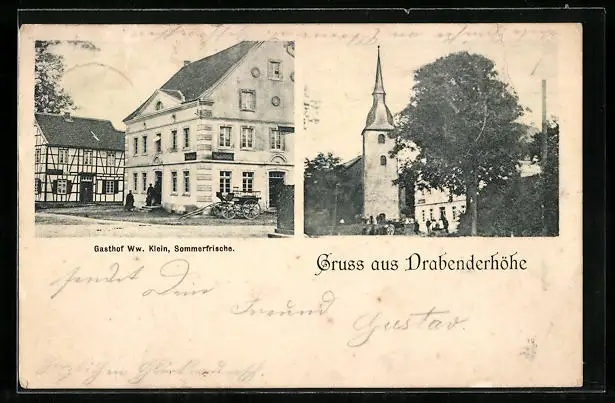 Gasthof Ww. Klein, Sommerfrische.
Gruss aus Drabenderhöhe
sendet Dein
Freund
Gustav.